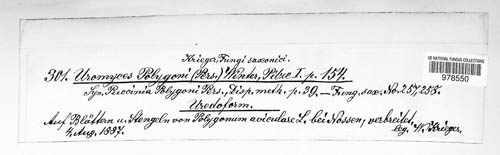 Krieger, Fungi saxonici.
US NATIONAL FUNGUS COLLECTIONS
978550
301. Uromyces Polygoni (Pers.) Winter, Pilze I. p. 154.
Syn. Puccinia Polygoni Pers., Disp. meth. p. 29. — Fung. sax. No. 257, 258.
Uredoform.
Auf Blättern u. Stengeln von Polygonum aviculare L. bei Nossen, verbreitet.
4. Aug. 1887. leg. W. Krieger.